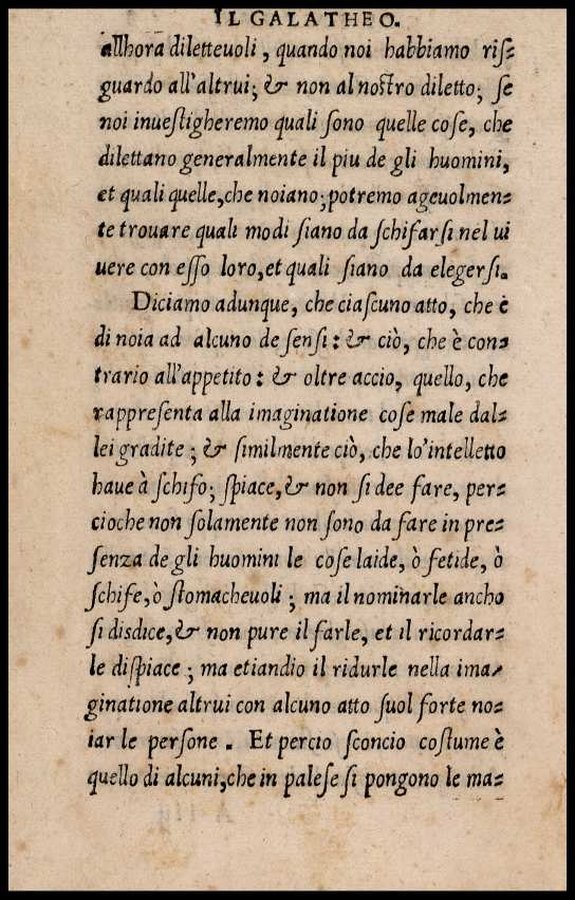 IL GALATHEO.
allhora diletteuoli, quando noi habbiamo riſ-
guardo all'altrui; & non al noſtro diletto; ſe
noi inueſtigheremo quali ſono quelle coſe, che
dilettano generalmente il piu de gli huomini,
et quali quelle, che noiano; potremo ageuolmen-
te trouare quali modi ſiano da ſchifarſi nel ui
uere con eſſo loro, et quali ſiano da elegerſi.
Diciamo adunque, che ciaſcuno atto, che è
di noia ad alcuno de ſenſi: & ciò, che è con-
trario all'appetito: & oltre acciο, quello, che
rappreſenta alla imaginatione coſe male dal-
lei gradite; & ſimilmente ciò, che lo'intelletto
haue à ſchifo; ſpiace, & non ſi dee fare, per-
cioche non ſolamente non ſono da fare in pre-
ſenza de gli huomini le coſe laide, ò fetide, ò
ſchife, ò ſtomacheuoli; ma il nominarle ancho
ſi disdice, & non pure il farle, et il ricordar-
le diſpiace; ma etiandio il ridurle nella ima-
ginatione altrui con alcuno atto ſuol forte no-
iar le perſone. Et percio ſconcio coſtume è
quello di alcuni, che in paleſe ſi pongono le ma-